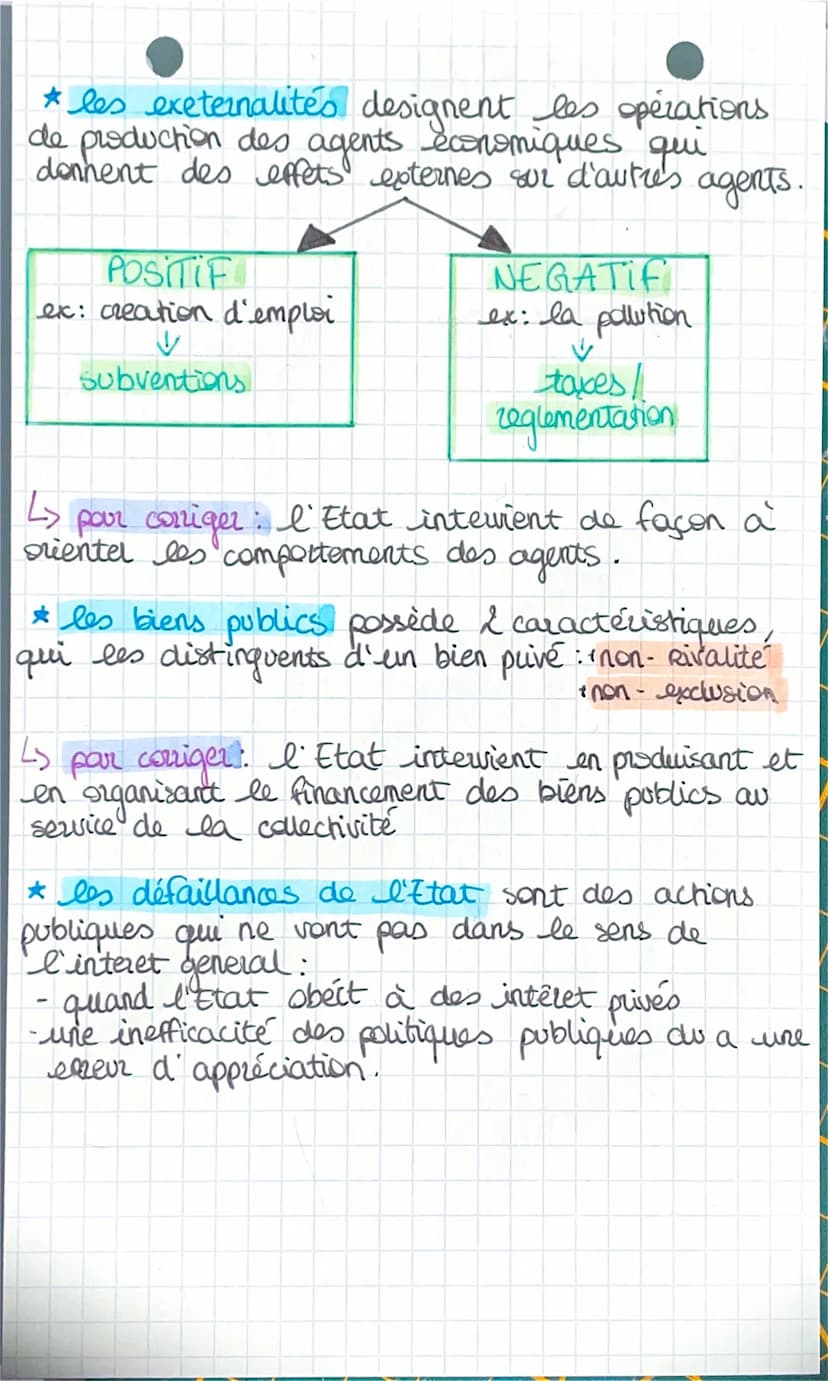 ★ les exeternalités designent les opérations
de production des agents économiques qui
donnent des effets externes sur d'autres agents.
POSITIF
ex: creation d'emploi
↓
subventions
NEGATIF
ex: la pollution
↓
taxes/
reglementation
↳ pour corriger : l'Etat intervient de façon à
orienter les comportements des agents.
★ les biens publics possède 2 caractéristiques,
qui les distinguents d'un bien privé : • non-Rivalité
• non-exclusion
↳ par corriger : l'Etat intervient en produisant et
en organisant le financement des biens publics au
service de la collectivité
★ les défaillances de l'Etat sont des actions
publiques qui ne vont pas dans le sens de
l'interet general :
- quand l'Etat obéit à des intêret privés
- une inefficacité des politiques publiques du a une
erreur d'appréciation.